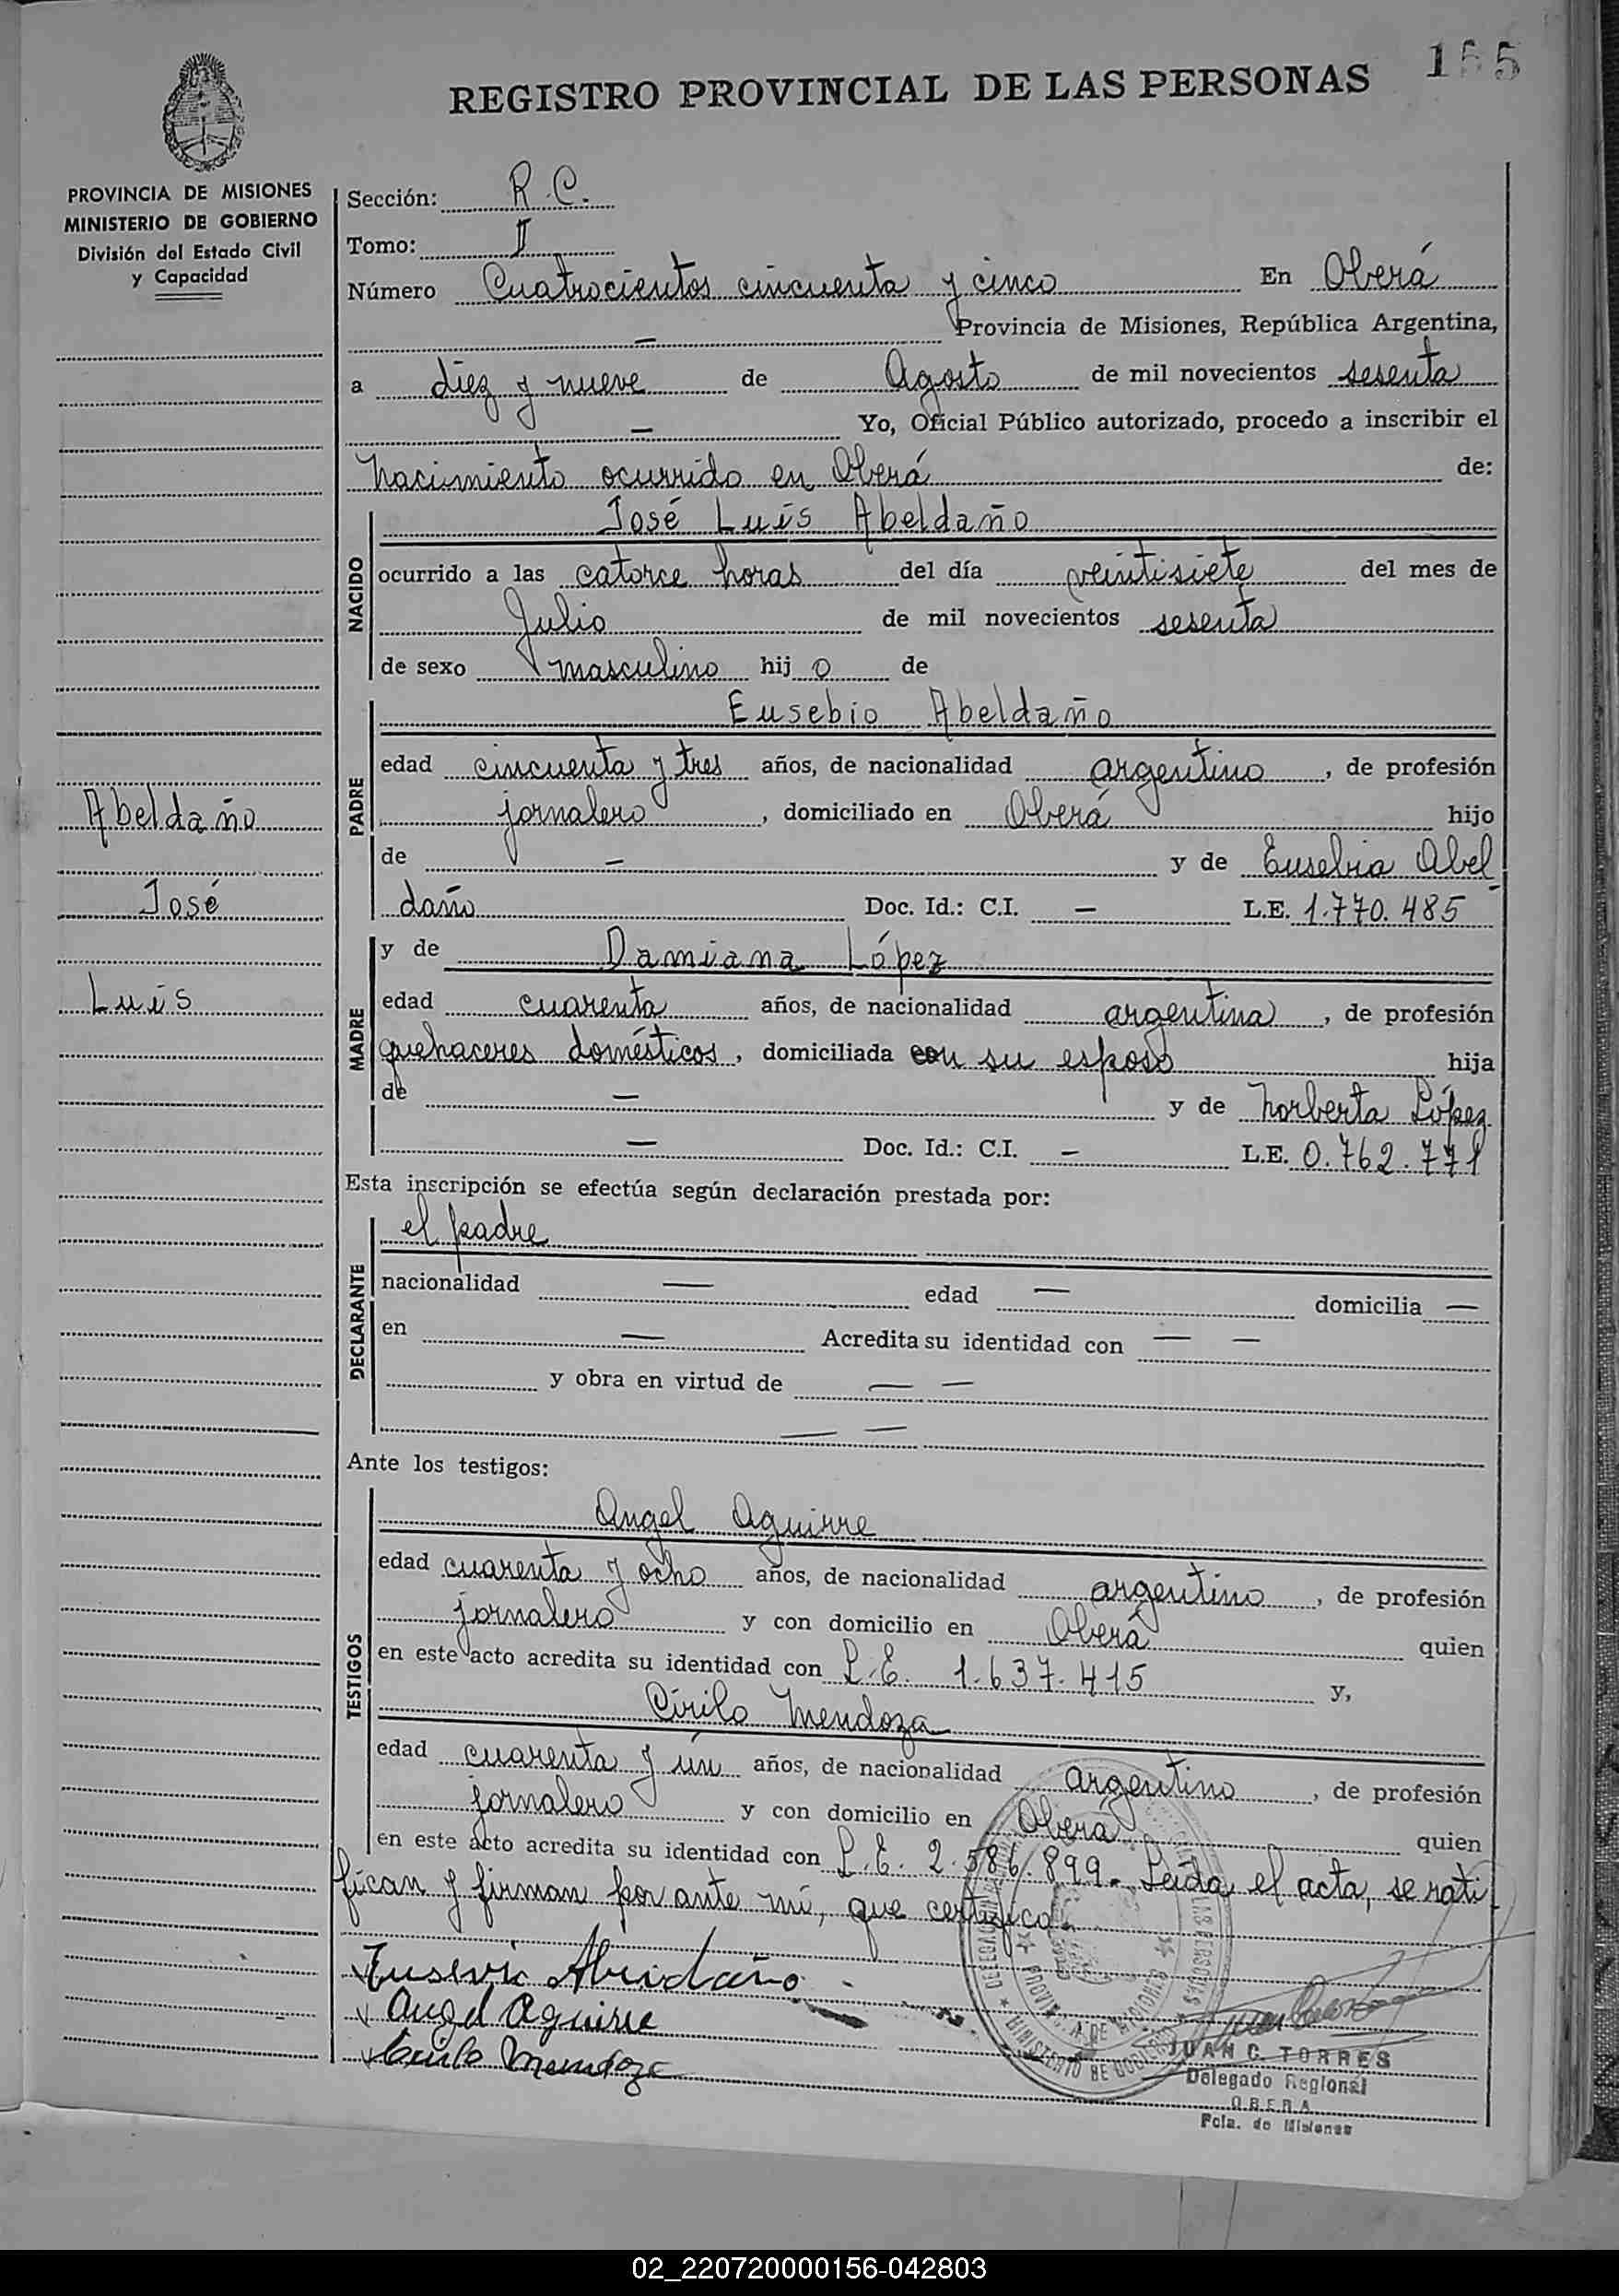 165
REGISTRO PROVINCIAL DE LAS PERSONAS
PROVINCIA DE MISIONES
MINISTERIO DE GOBIERNO
División del Estado Civil
y Capacidad
Abeldaño
José
Luis
Sección: R.C.
Tomo: II
Número Cuatrocientos cincuenta y cinco En Oberá
— Provincia de Misiones, República Argentina,
a diez y nueve de Agosto de mil novecientos sesenta
— Yo, Oficial Público autorizado, procedo a inscribir el
nacimiento ocurrido en Oberá de:
NACIDO
José Luis Abeldaño
ocurrido a las catorce horas del día veintisiete del mes de
Julio de mil novecientos sesenta
de sexo masculino hij o de
PADRE
Eusebio Abeldaño
edad cincuenta y tres años, de nacionalidad argentino, de profesión
jornalero, domiciliado en Oberá hijo
de — y de Eusebia Abel
daño Doc. Id.: C.I. — L.E. 1.770.485
MADRE
y de Damiana López
edad cuarenta años, de nacionalidad argentina, de profesión
quehaceres domésticos, domiciliada con su esposo hija
de — y de Norberta López
— Doc. Id.: C.I. — L.E. 0.762.771
Esta inscripción se efectúa según declaración prestada por:
DECLARANTE
el padre
nacionalidad — edad — domicilia —
en — Acredita su identidad con — —
y obra en virtud de — —
— —
Ante los testigos:
TESTIGOS
Angel Aguirre
edad cuarenta y ocho años, de nacionalidad argentino, de profesión
jornalero y con domicilio en Oberá quien
en este acto acredita su identidad con L.E. 1.637.415 y,
Cirilo Mendoza
edad cuarenta y ún años, de nacionalidad argentino, de profesión
jornalero y con domicilio en Oberá quien
en este acto acredita su identidad con L.E. 2.586.899.- Leída el acta, se rati
fican y firman por ante mí, que certifico.-
Angel Aguirre
Cirilo Mendoza
JUAN C. TORRES
Delegado Regional
OBERA
Pcia. de Misiones
02_220720000156-042803